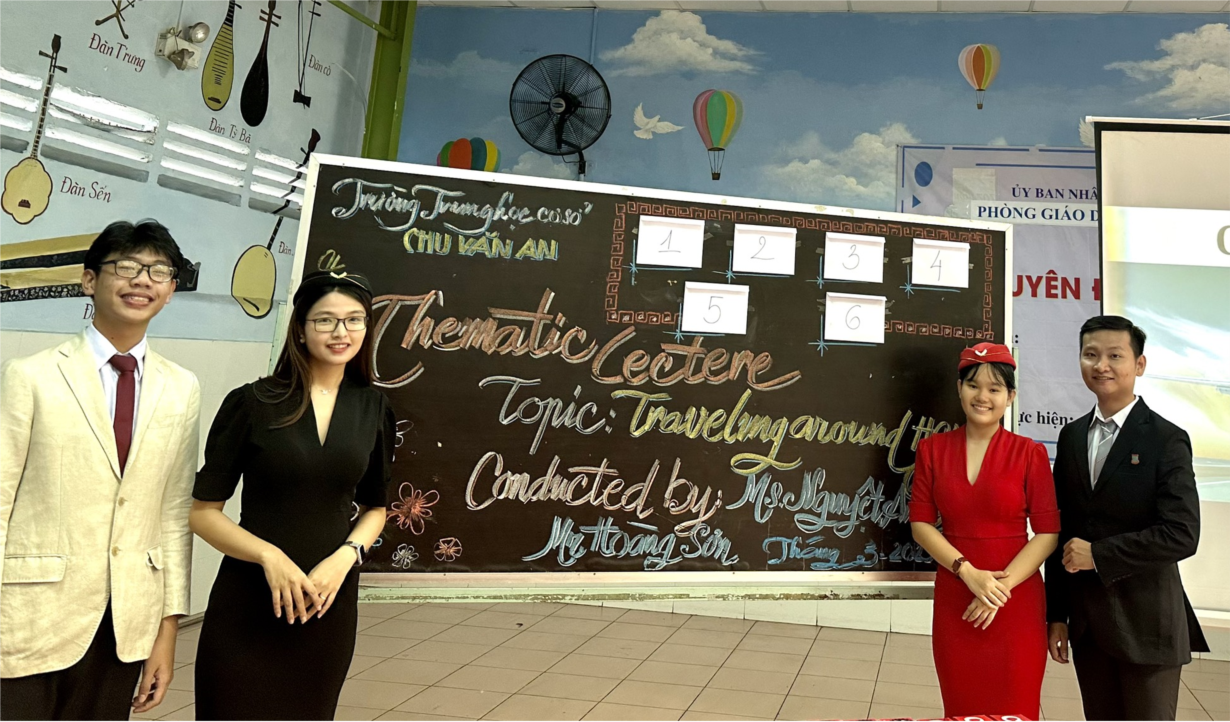 Đàn Trưng
Đàn Tỳ Bà
Đàn cò
Đàn Sến
Trường Trung học cơ sở
CHU VĂN AN
1
2
3
4
5
6
Thematic Lectere
Topic: Traveling around
Conducted by: Ms. Nguyệt
Mr. Hoàng Sơn
Tháng 3-202
ỦY BAN NHÂ
PHÒNG GIÁO D
UYÊN
ực hiện: